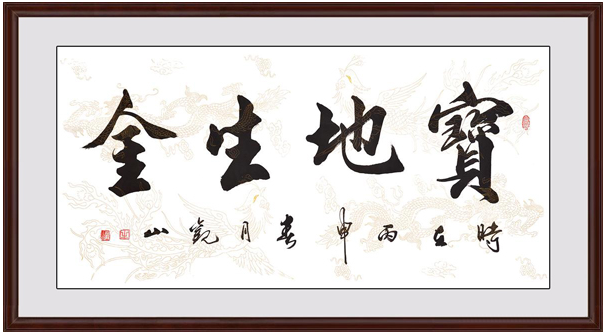 寶地生金
時在丙申春月觀山